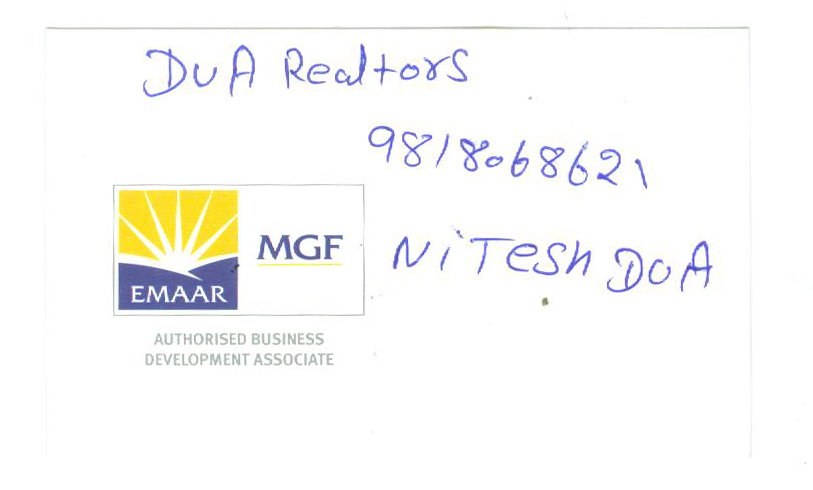 DUA Realtors
9818068621
NiTesh DUA
EMAAR
MGF
AUTHORISED BUSINESS
DEVELOPMENT ASSOCIATE